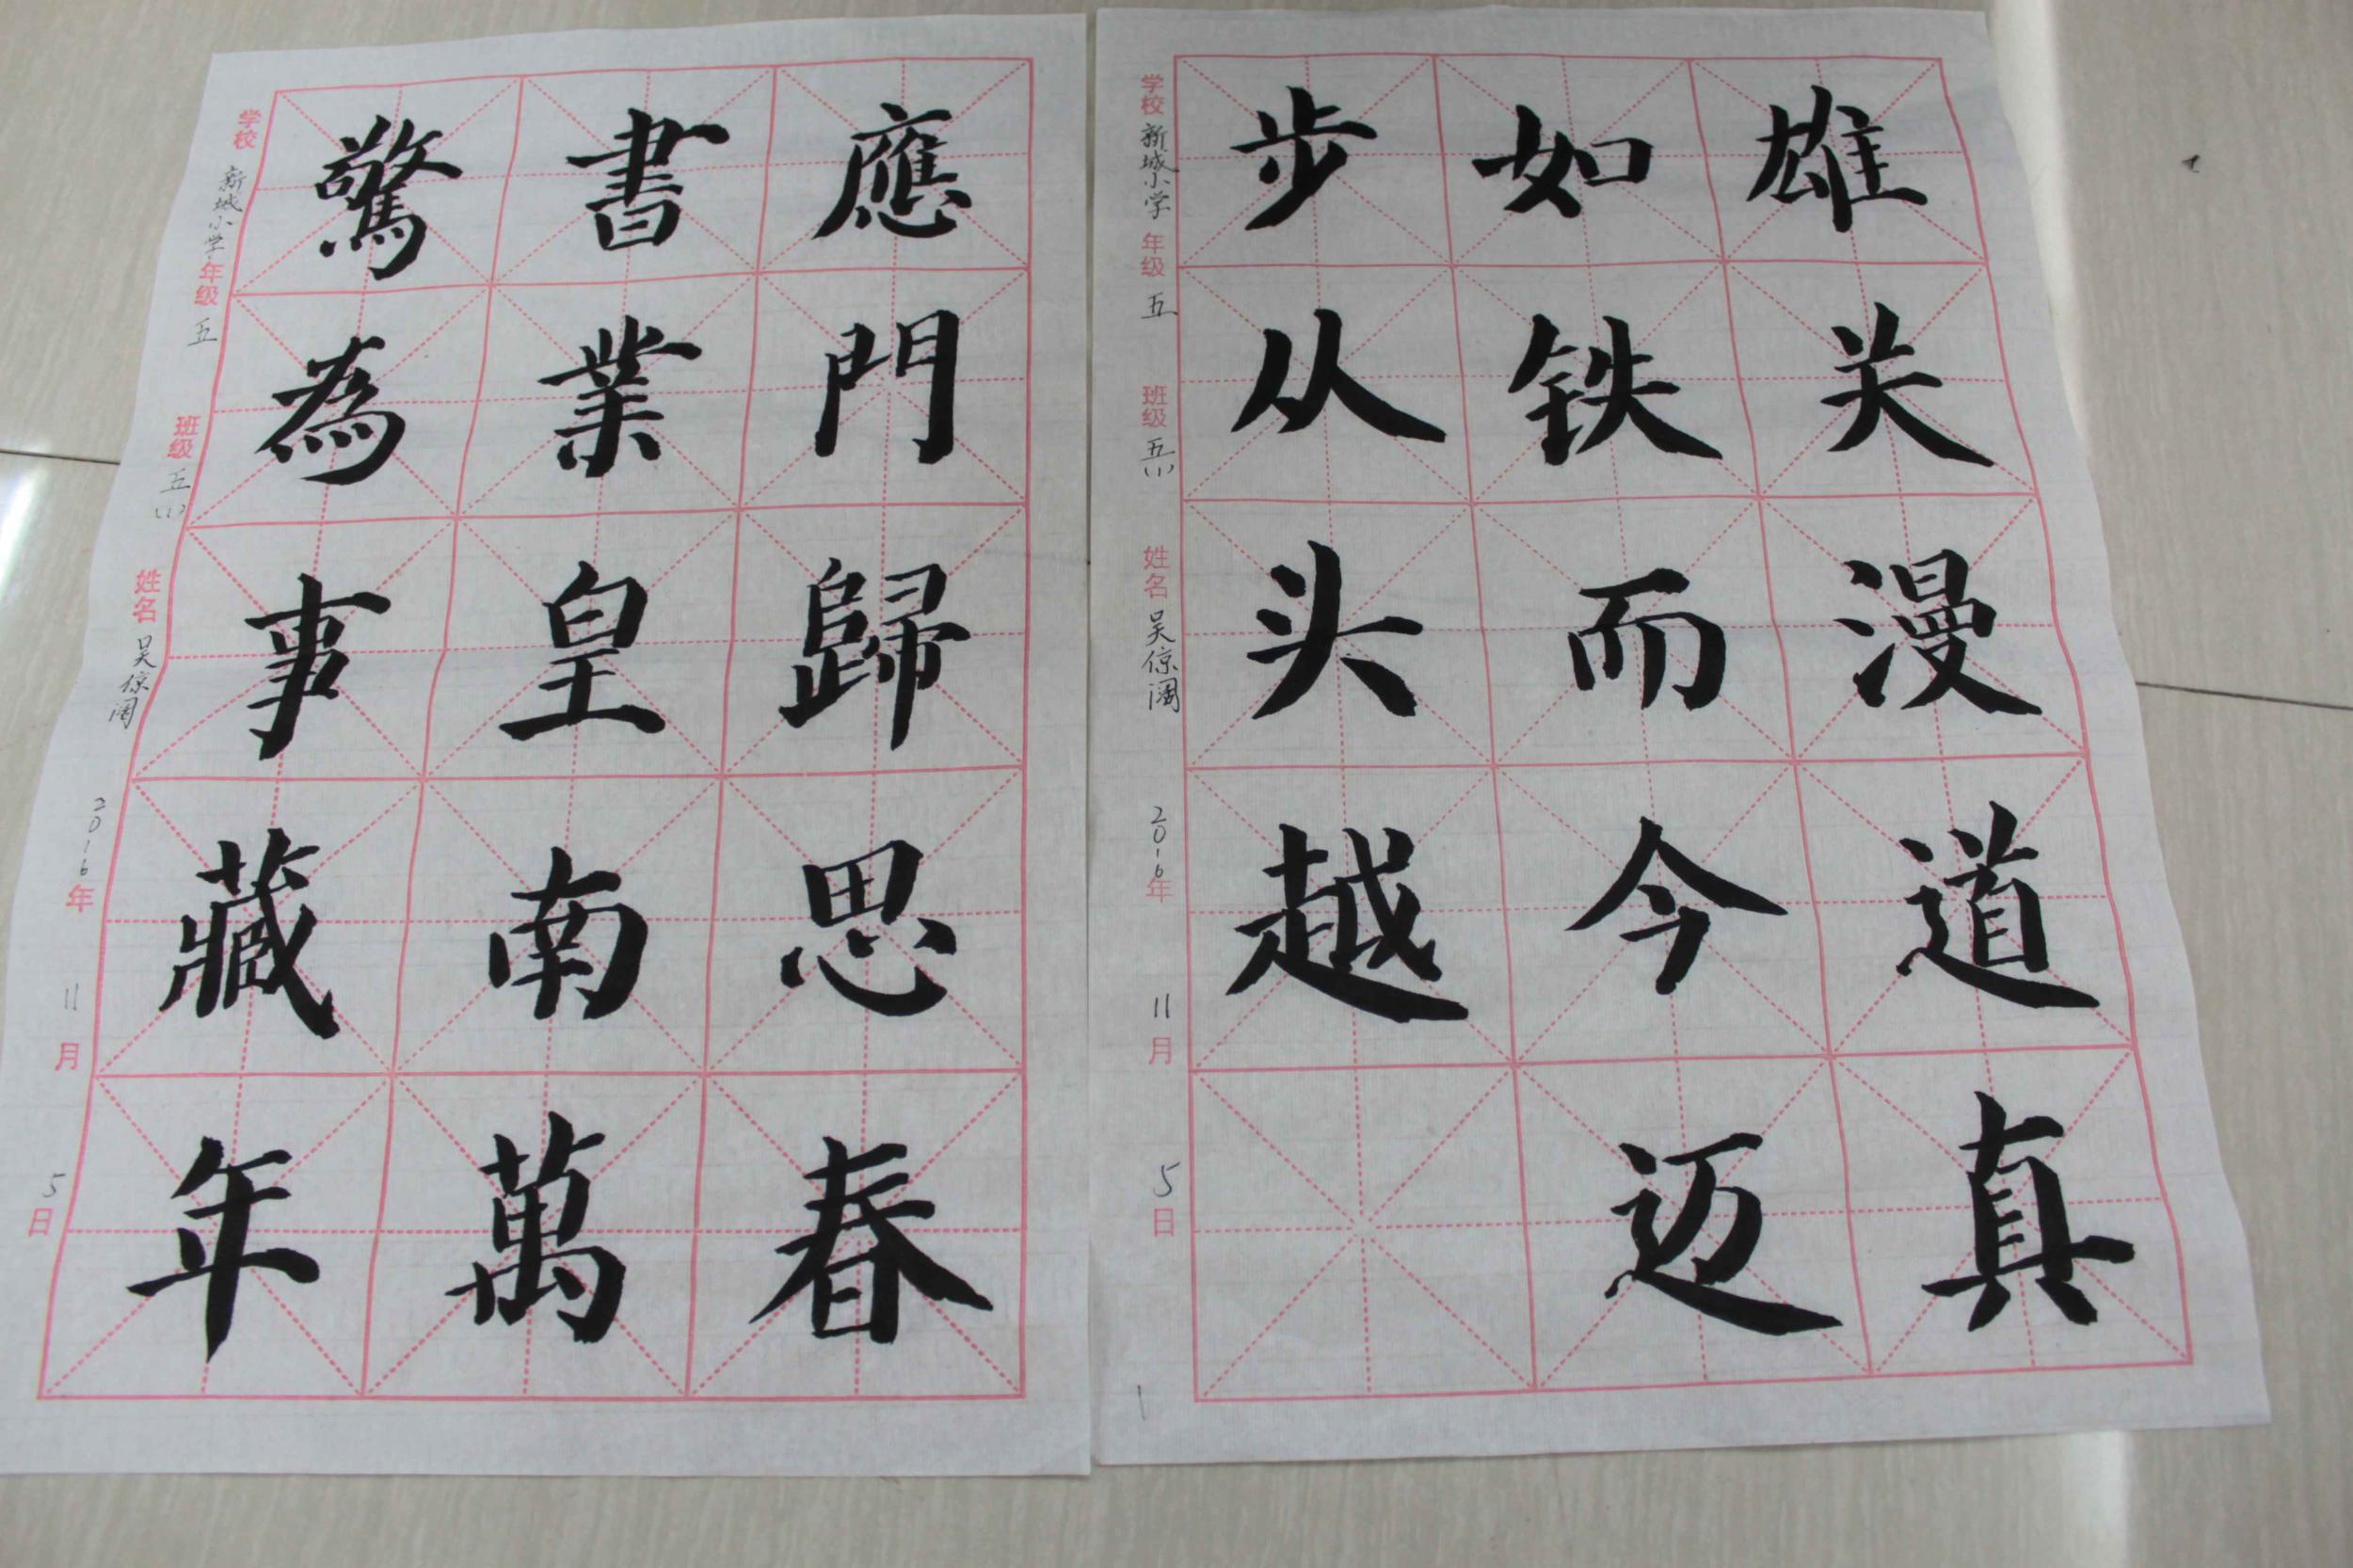 雄关漫道真
如铁而今迈
步从头越
学校 新城小学 年级 五 班级 五(1) 姓名 吴倞阔 2016年 11月 5日
應門歸思春
書業皇南萬
驚為事藏年
学校 新城小学 年级 五 班级 五(1) 姓名 吴倞阔 2016年 11月 5日